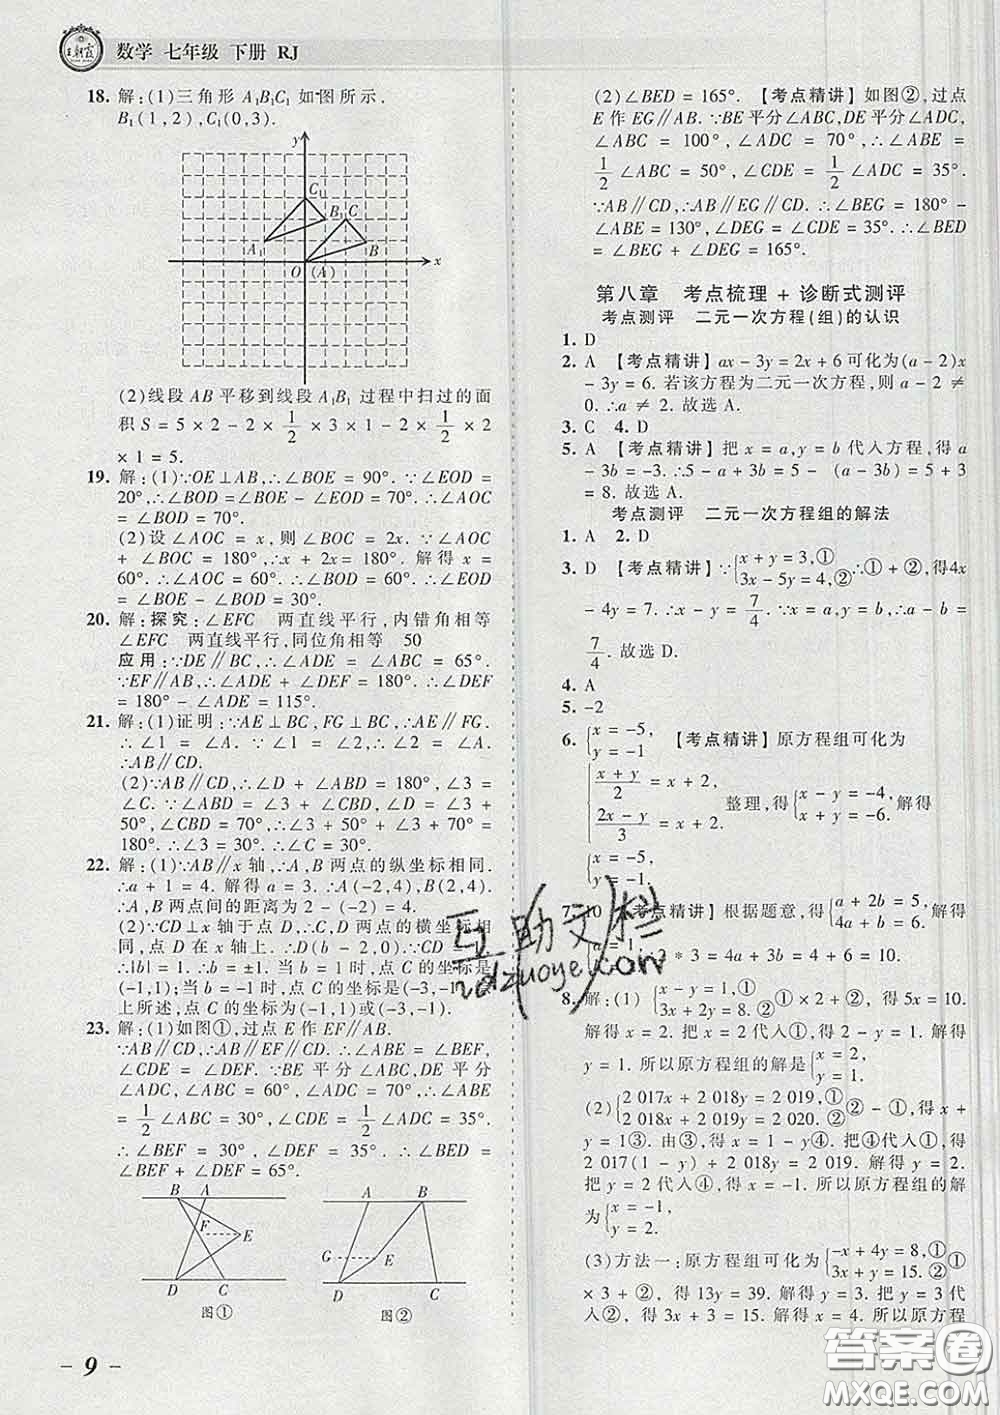 王朝霞 数学 七年级 下册 RJ
18. 解:(1)三角形 A₁B₁C₁ 如图所示.
B₁(1,2),C₁(0,3).
y
C₁
B₁ C
A₁ B
O (A) x
(2)线段 AB 平移到线段 A₁B₁ 过程中扫过的面
积 S = 5 × 2 - 2 × 1/2 × 3 × 1 - 2 × 1/2 × 2
× 1 = 5.
19. 解:(1)∵OE⊥AB,∴∠BOE = 90°. ∵∠EOD =
20°,∴∠BOD = ∠BOE - ∠EOD = 70°. ∴∠AOC
= ∠BOD = 70°.
(2)设∠AOC = x,则∠BOC = 2x. ∵∠AOC
+ ∠BOC = 180°,∴x + 2x = 180°. 解得 x =
60°. ∴∠AOC = 60°. ∴∠BOD = 60°. ∴∠EOD
= ∠BOE - ∠BOD = 30°.
20. 解:探究:∠EFC 两直线平行,内错角相等
∠EFC 两直线平行,同位角相等 50
应用:∵DE∥BC,∴∠ADE = ∠ABC = 65°.
∵EF∥AB,∴∠ADE + ∠DEF = 180°. ∴∠DEF
= 180° - ∠ADE = 115°.
21. 解:(1)证明:∵AE⊥BC,FG⊥BC,∴AE∥FG.
∴∠1 = ∠A. ∵∠1 = ∠2,∴∠2 = ∠A.
∴AB∥CD.
(2)∵AB∥CD,∴∠D + ∠ABD = 180°,∠3 =
∠C. ∵∠ABD = ∠3 + ∠CBD,∠D = ∠3 +
50°,∠CBD = 70°,∴∠3 + 50° + ∠3 + 70° =
180°. ∴∠3 = 30°. ∴∠C = 30°.
22. 解:(1)∵AB∥x 轴,∴A,B 两点的纵坐标相同.
∴a + 1 = 4. 解得 a = 3. ∴A(-2,4),B(2,4).
∴A,B 两点间的距离为 2 - (-2) = 4.
(2)∵CD⊥x 轴于点 D,∴C,D 两点的横坐标相
同,点 D 在 x 轴上. ∴D(b - 2,0). ∵CD =
∴|b| = 1. ∴b = ±1. 当 b = 1 时,点 C 的坐标是
(-1,1);当 b = -1 时,点 C 的坐标是(-3,-1).
上所述,点 C 的坐标为(-1,1)或(-3,-1).
23. 解:(1)如图①,过点 E 作 EF∥AB.
∵AB∥CD,∴AB∥EF∥CD. ∴∠ABE = ∠BEF,
∠CDE = ∠DEF. ∵BE 平分∠ABC,DE 平分
∠ADC,∠ABC = 60°,∠ADC = 70°,∴∠ABE
= 1/2 ∠ABC = 30°,∠CDE = 1/2 ∠ADC = 35°.
∴∠BEF = 30°,∠DEF = 35°. ∴∠BED =
∠BEF + ∠DEF = 65°.
B A
F E
D C
图①
A B
G E
D C
图②
- 9 -
(2)∠BED = 165°. 【考点精讲】如图②,过点
E 作 EG∥AB. ∵BE 平分∠ABC,DE 平分∠ADC,
∠ABC = 100°,∠ADC = 70°,∴∠ABE =
1/2 ∠ABC = 50°,∠CDE = 1/2 ∠ADC = 35°.
∵AB∥CD,∴AB∥EG∥CD. ∴∠BEG = 180° -
∠ABE = 130°,∠DEG = ∠CDE = 35°. ∴∠BED
= ∠BEG + ∠DEG = 165°.
第八章 考点梳理 + 诊断式测评
考点测评 二元一次方程(组)的认识
1. D
2. A 【考点精讲】ax - 3y = 2x + 6 可化为(a - 2)x
- 3y = 6. 若该方程为二元一次方程,则 a - 2 ≠
0. ∴a ≠ 2. 故选 A.
3. C 4. D
5. A 【考点精讲】把 x = a,y = b 代入方程,得 a
- 3b = -3. ∴5 - a + 3b = 5 - (a - 3b) = 5 + 3
= 8. 故选 A.
考点测评 二元一次方程组的解法
1. A 2. D
3. D 【考点精讲】∵{x + y = 3,① 3x - 5y = 4,② ∴① + ②,得4x
- 4y = 7. ∴x - y = 7/4. ∵x = a,y = b,∴a - b =
7/4. 故选 D.
4. A
5. -2
6. {x = -5, y = -1 【考点精讲】原方程组可化为
{(x + y)/2 = x + 2, (2x - y)/3 = x + 2. 整理,得{x - y = -4, x + y = -6. 解得
{x = -5, y = -1.
7. 10 【考点精讲】根据题意,得{a + 2b = 5, 4a + b = 6. 解得
* 3 = 4a + 3b = 4 + 6 = 10.
8. 解:(1) {x - y = 1,① 3x + 2y = 8.② ① × 2 + ②,得 5x = 10.
解得 x = 2. 把 x = 2 代入①,得 2 - y = 1. 解得
y = 1. 所以原方程组的解是{x = 2, y = 1.
(2){2 017x + 2 018y = 2 019,① 2 018x + 2 019y = 2 020.② ② - ①,得 x +
y = 1③. 由③,得 x = 1 - y④. 把④代入①,得
2 017(1 - y) + 2 018y = 2 019. 解得 y = 2.
把 y = 2 代入④,得 x = -1. 所以原方程组的解
为{x = -1, y = 2.
(3)方法一:原方程组可化为{-x + 4y = 8,① 3x + y = 15.② ①
× 3 + ②,得 13y = 39. 解得 y = 3. 把 y = 3 代
入②,得 3x + 3 = 15. 解得 x = 4. 所以原方程
互助文档
hdzuoye.com
答案圈
MXQE.COM